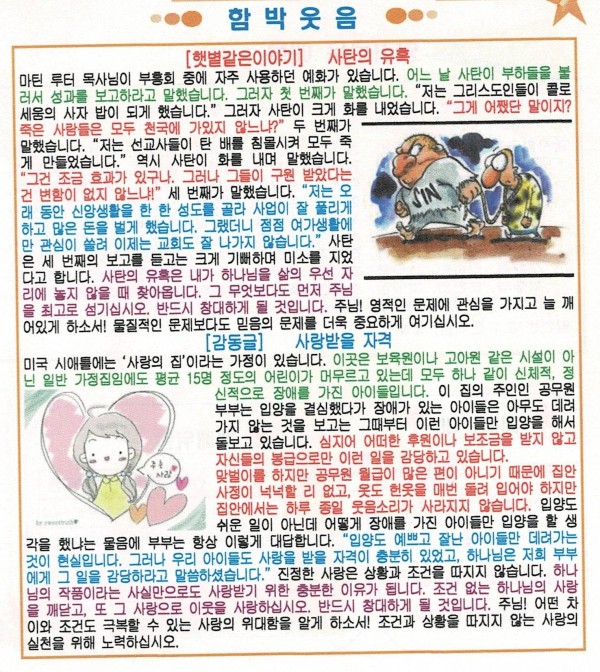 함박웃음
[햇별같은이야기] 사탄의 유혹
마틴 루터 목사님이 부흥회 중에 자주 사용하던 예화가 있습니다. 어느 날 사탄이 부하들을 불
러서 성과를 보고하라고 말했습니다. 그러자 첫 번째가 말했습니다. “저는 그리스도인들이 콜로
세움의 사자 밥이 되게 했습니다.” 그러자 사탄이 크게 화를 내었습니다. “그게 어쨌단 말이지?
죽은 사람들은 모두 천국에 가있지 않느냐?” 두 번째가
말했습니다. “저는 선교사들이 탄 배를 침몰시켜 모두 죽
게 만들었습니다.” 역시 사탄이 화를 내며 말했습니다.
“그건 조금 효과가 있구나. 그러나 그들이 구원 받았다는
건 변함이 없지 않느냐!” 세 번째가 말했습니다. “저는 오
래 동안 신앙생활을 한 한 성도를 골라 사업이 잘 풀리게
하고 많은 돈을 벌게 했습니다. 그랬더니 점점 여가생활에
만 관심이 쏠려 이제는 교회도 잘 나가지 않습니다.” 사탄
은 세 번째의 보고를 듣고는 크게 기뻐하며 미소를 지었
다고 합니다. 사탄의 유혹은 내가 하나님을 삶의 우선 자
리에 놓지 않을 때 찾아옵니다. 그 무엇보다도 먼저 주님
을 최고로 섬기십시오. 반드시 창대하게 될 것입니다. 주님! 영적인 문제에 관심을 가지고 늘 깨
어있게 하소서! 물질적인 문제보다도 믿음의 문제를 더욱 중요하게 여기십시오.
SIN
[감동글] 사랑받을 자격
미국 시애틀에는 ‘사랑의 집’이라는 가정이 있습니다. 이곳은 보육원이나 고아원 같은 시설이 아
닌 일반 가정집임에도 평균 15명 정도의 어린이가 머무르고 있는데 모두 하나 같이 신체적, 정
신적으로 장애를 가진 아이들입니다. 이 집의 주인인 공무원
부부는 입양을 결심했다가 장애가 있는 아이들은 아무도 데려
가지 않는 것을 보고는 그때부터 이런 아이들만 입양을 해서
돌보고 있습니다. 심지어 어떠한 후원이나 보조금을 받지 않고
자신들의 봉급으로만 이런 일을 감당하고 있습니다.
맞벌이를 하지만 공무원 월급이 많은 편이 아니기 때문에 집안
사정이 넉넉할 리 없고, 옷도 헌옷을 매번 돌려 입어야 하지만
집안에서는 하루 종일 웃음소리가 사라지지 않습니다. 입양도
쉬운 일이 아닌데 어떻게 장애를 가진 아이들만 입양을 할 생
각을 했냐는 물음에 부부는 항상 이렇게 대답합니다. “입양도 예쁘고 잘난 아이들만 데려가는
것이 현실입니다. 그러나 우리 아이들도 사랑을 받을 자격이 충분히 있었고, 하나님은 저희 부부
에게 그 일을 감당하라고 말씀하셨습니다.” 진정한 사랑은 상황과 조건을 따지지 않습니다. 하나
님의 작품이라는 사실만으로도 사랑받기 위한 충분한 이유가 됩니다. 조건 없는 하나님의 사랑
을 깨닫고, 또 그 사랑으로 이웃을 사랑하십시오. 반드시 창대하게 될 것입니다. 주님! 어떤 차
이와 조건도 극복할 수 있는 사랑의 위대함을 알게 하소서! 조건과 상황을 따지지 않는 사랑의
실천을 위해 노력하십시오.
주는
사랑